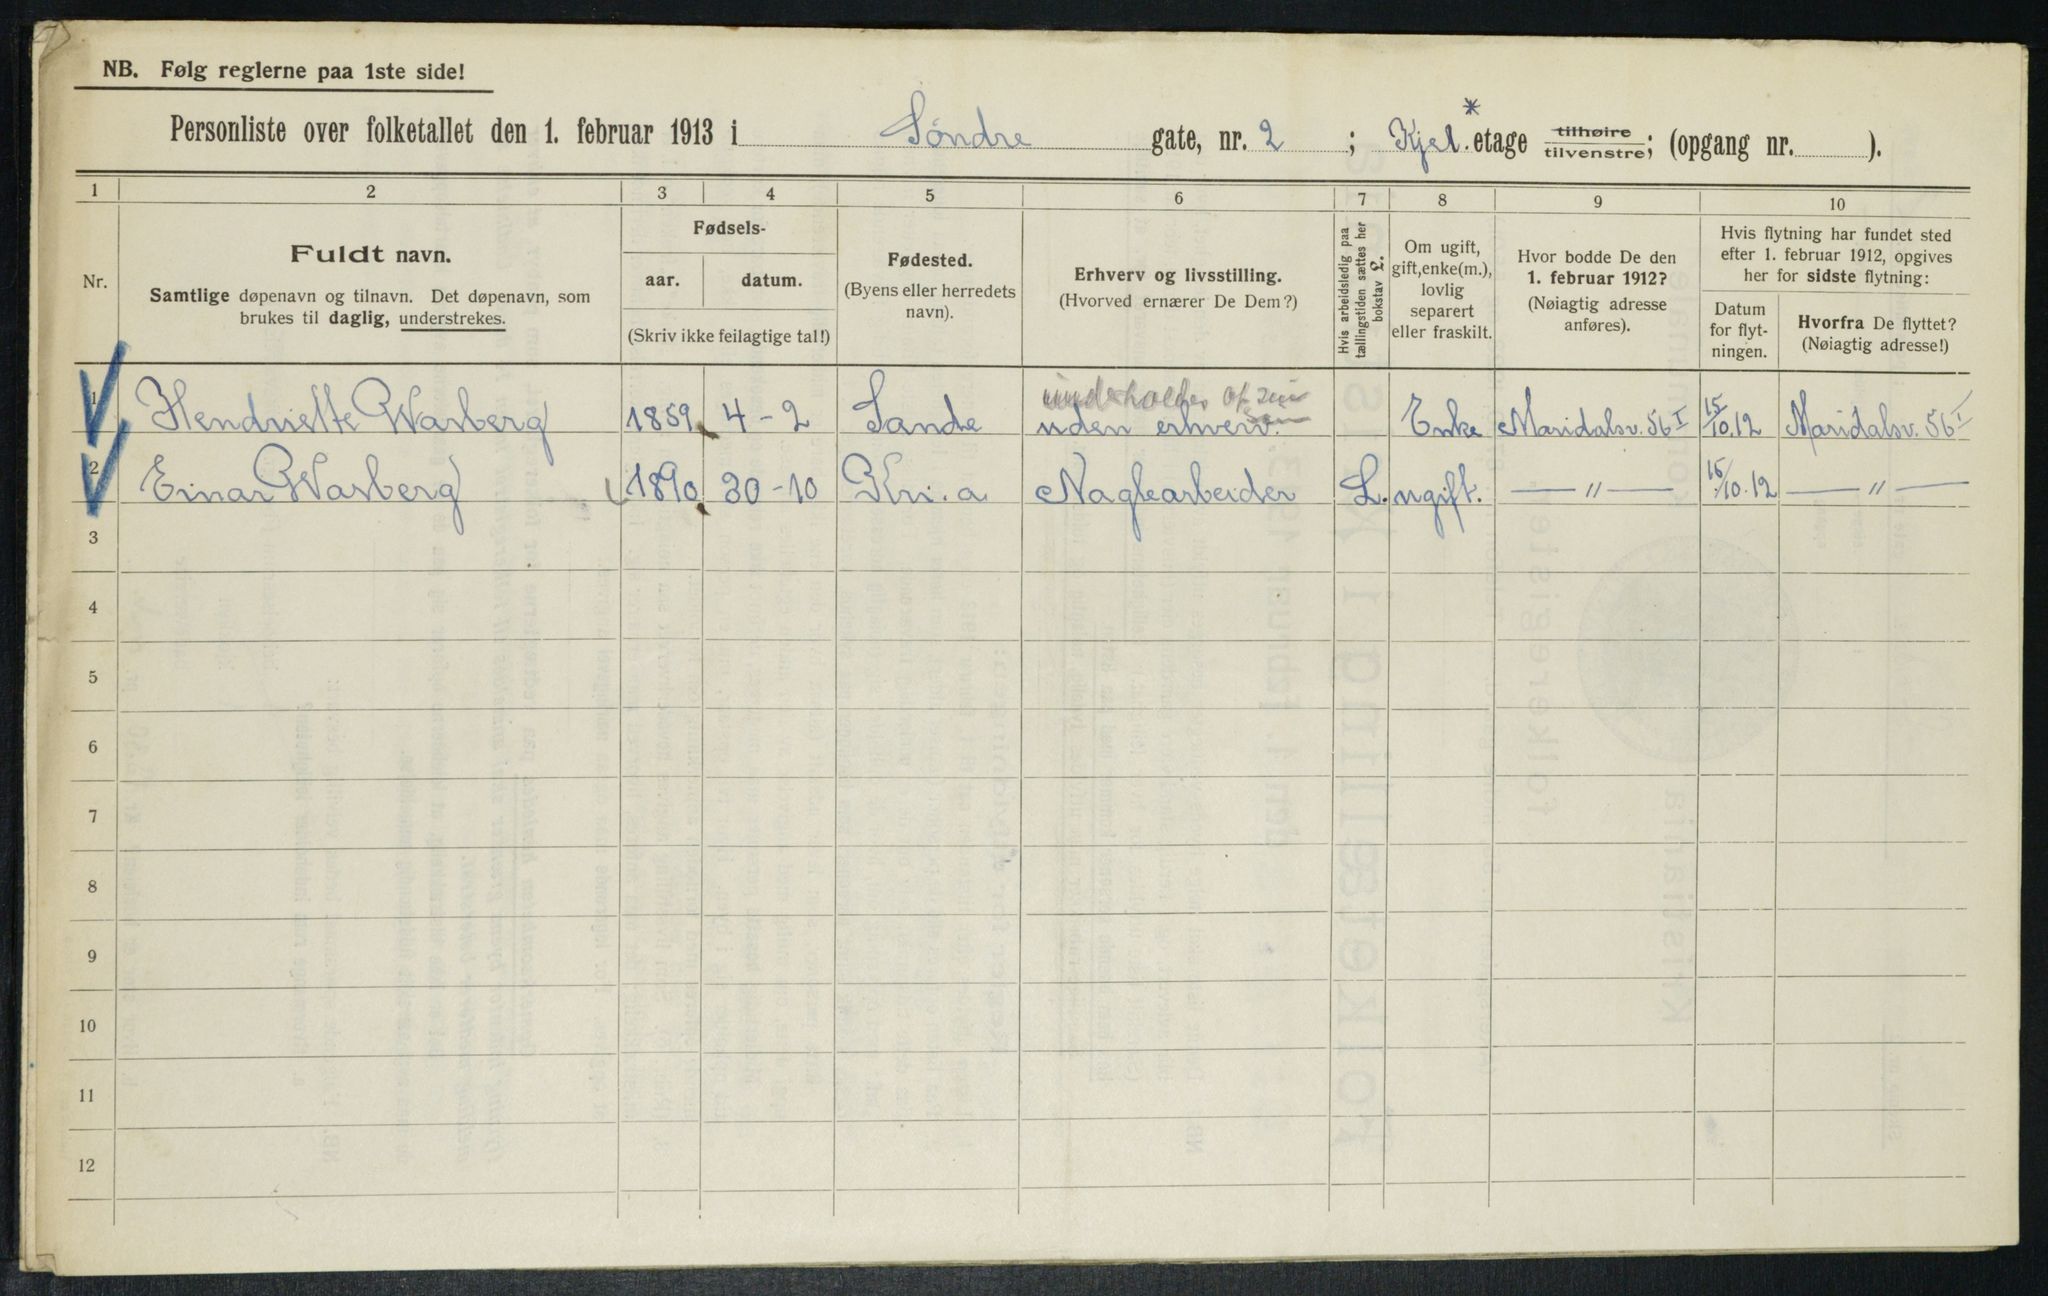 NB. Følg reglerne paa 1ste side!
Personliste over folketallet den 1. februar 1913 i Søndre gate, nr. 2 ; Kjel.* etage tilhøire/tilvenstre; (opgang nr. ).
1 2 3 4 5 6 7 8 9 10
Nr.
Fuldt navn.
Samtlige døpenavn og tilnavn. Det døpenavn, som
brukes til daglig, understrekes.
Fødsels-
aar. datum.
(Skriv ikke feilagtige tal!)
Fødested.
(Byens eller herredets
navn).
Erhverv og livsstilling.
(Hvorved ernærer De Dem?)
Hvis arbeidsledig paa
tællingstiden sættes her
bokstav L.
Om ugift,
gift, enke(m.),
lovlig
separert
eller fraskilt.
Hvor bodde De den
1. februar 1912?
(Nøiagtig adresse
anføres).
Hvis flytning har fundet sted
efter 1. februar 1912, opgives
her for sidste flytning:
Datum
for flyt-
ningen.
Hvorfra De flyttet?
(Nøiagtig adresse!)
underholdes af sin
søn
1 Hendriette Warberg 1859 4-2 Sande uden erhverv. Enke Maridalsv. 56 I 15/10.12 Maridalsv. 56 I
2 Einar Warberg 1890 30-10 Kri.a Naglearbeider L. ugift. — " — 15/10.12 — " —
3
4
5
6
7
8
9
10
11
12